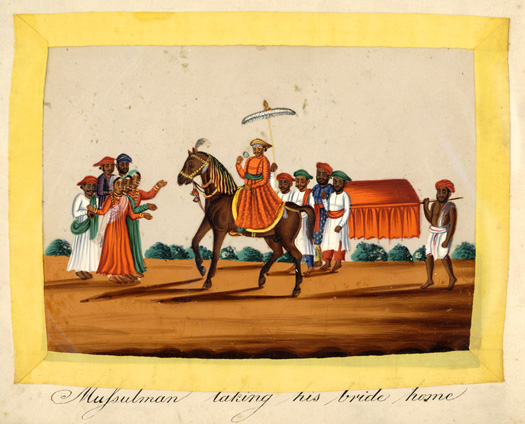 Mufsulman taking his bride home